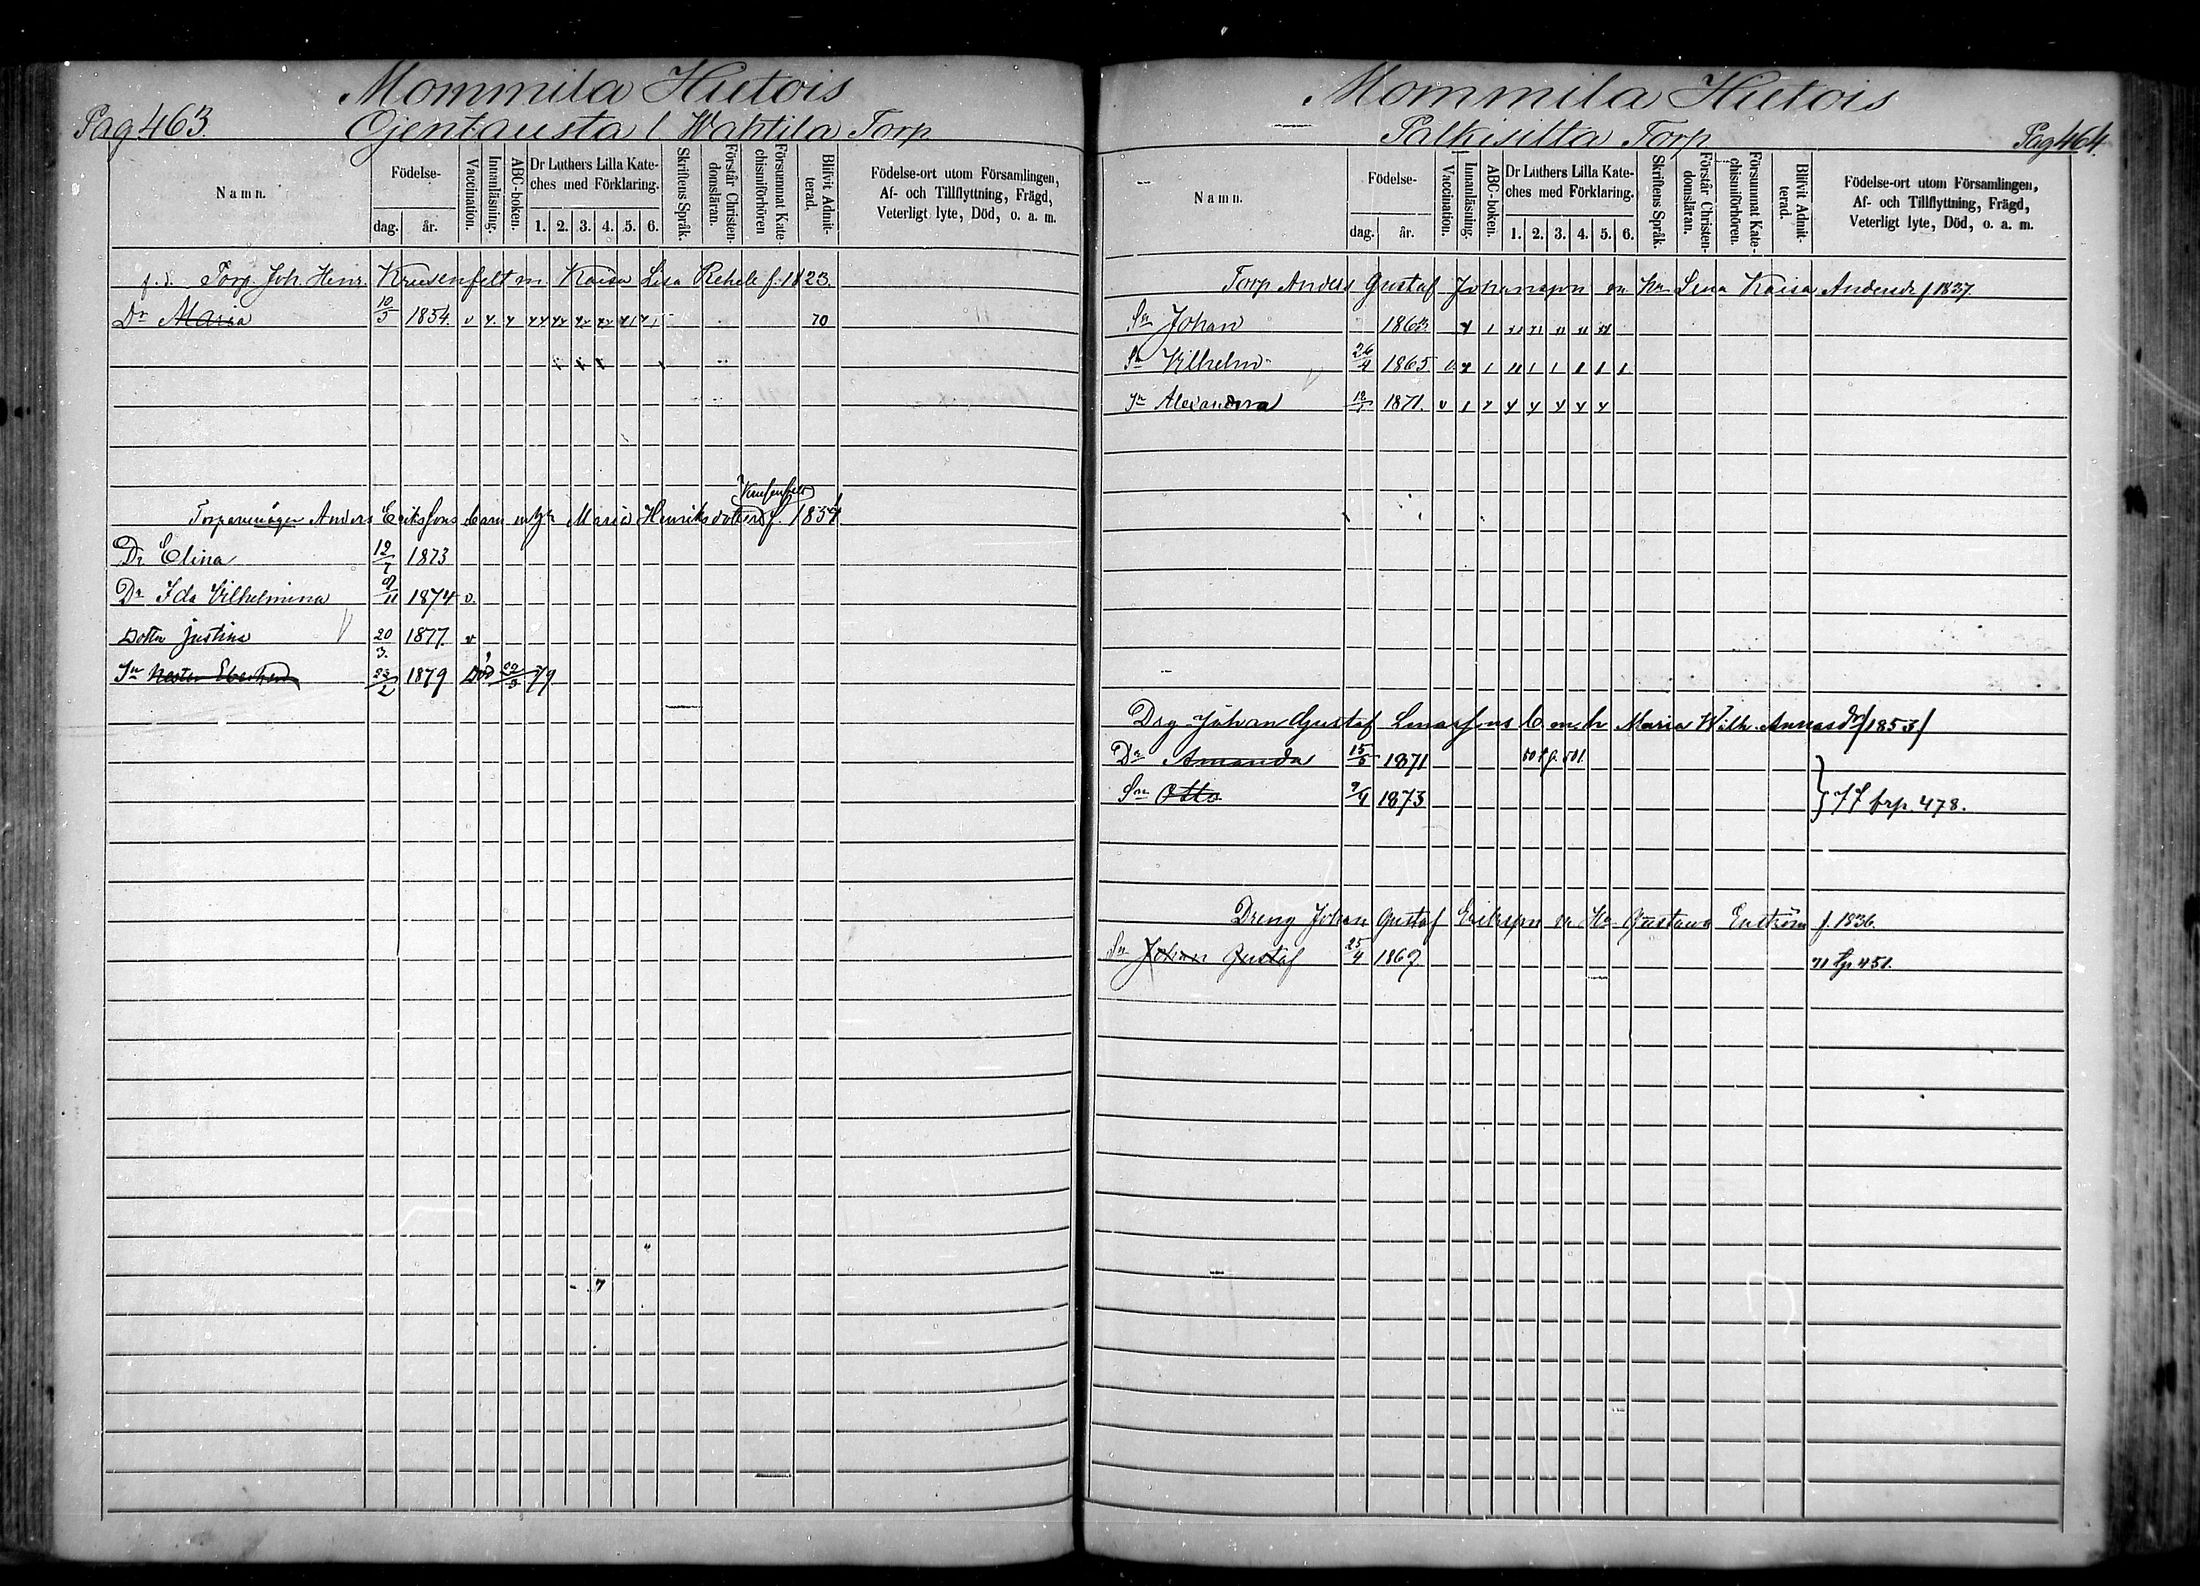 Mommila Hietois
Pag. 463.
Ojentausta l. Wahtila Torp
Namn.
Födelse-
dag.
år.
Vaccination.
Innanläsning.
ABC-boken.
Dr Luthers Lilla Kate-
ches med Förklaring.
1. 2. 3. 4. 5. 6.
Skriftens Språk.
Förstår Christen-
domsläran.
Försummat Kate-
chismiförhören
Blifvit Admit-
terad,
Födelse-ort utom Församlingen,
Af- och Tillflyttning, Frägd,
Veterligt lyte, Död, o. a. m.
f. d. Torp. Joh. Henr. Kreusenfelt m. Kaisa Lisa f. 1823.
Dr Maria 10/5 1854. v 70
Anders Eriksons barn m h Maria Henriksdotter f. 1854
Dr Elina 12/7 1873
Dr Ida Vilhelmina 9/11 1874 v.
Dotter Justina 20/3. 1877. v
Sn 23/2 1879 Död 22/3 79.
Mommila Hietois
Palkisilta Torp
Pag. 464.
Namn.
Födelse-
dag.
år.
Vaccination.
Innanläsning.
ABC-boken.
Dr Luthers Lilla Kate-
ches med Förklaring.
1. 2. 3. 4. 5. 6.
Skriftens Språk.
Förstår Christen-
domsläran.
Försummat Kate-
chismiförhören.
Blifvit Admit-
terad.
Födelse-ort utom Församlingen,
Af- och Tillflyttning, Frägd,
Veterligt lyte, Död, o. a. m.
Torp Anders Gustaf Johansson o. Hu Lena Kaisa Andersdr f 1837.
Sn Johan 1863.
Sn Vilhelm 26/4 1865 v.
Sn Alexander 18/1 1871. v
Drg Johan Gustaf b m h Maria Wilh. Annasdr /1853/
Dr Amanda 15/5 1871
Sn Otto 9/4 1873 77 brp. 478.
Dreng Johan Gustaf Erikson o. Hu Gustava Enström f. 1836.
Sn Johan Gustaf 25/4 1869. 71 451.